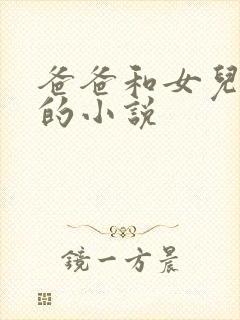 爸爸和女兒
的小説
鏡一方晨